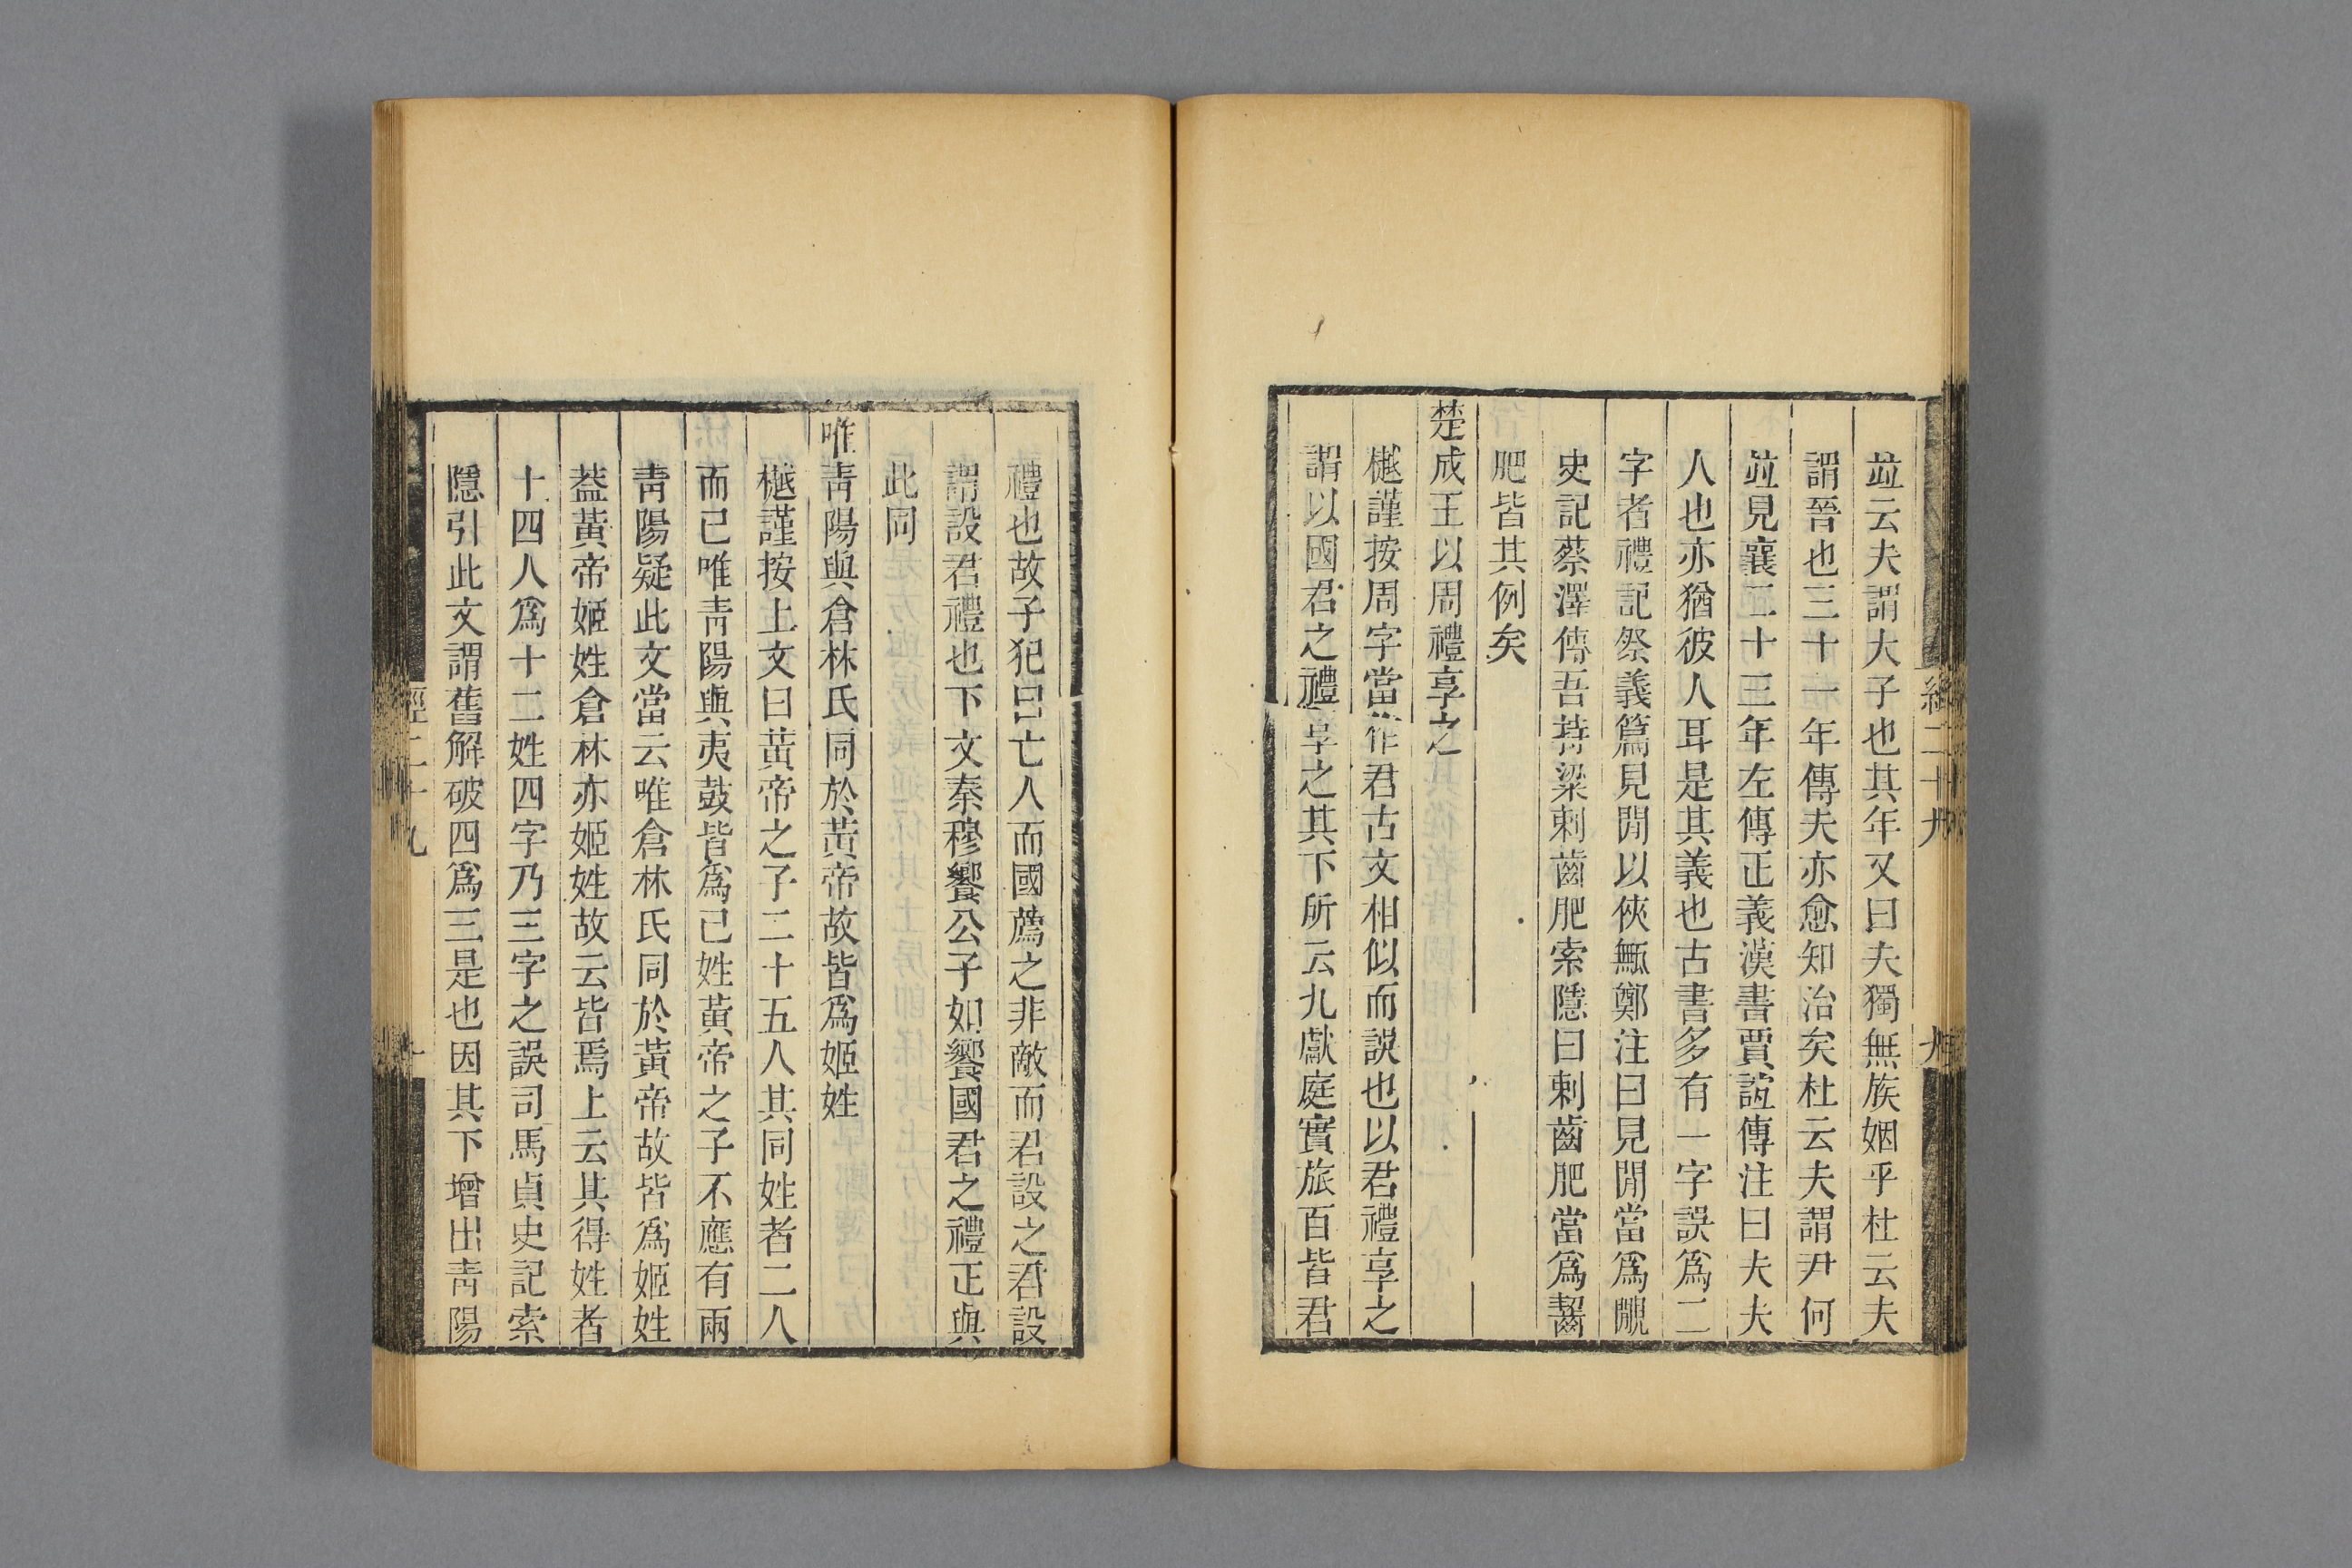 竝云夫謂大子也其年又曰夫獨無族姻乎杜云夫
謂晉也三十一年傳夫亦愈知治矣杜云夫謂尹何
竝見襄二十三年左傳正義漢書賈誼傳注曰夫夫
人也亦猶彼人耳是其義也古書多有一字誤爲二
字者禮記祭義篇見閒以俠甒鄭注曰見閒當爲覵
史記蔡澤傳吾持粱刺齒肥索隱曰刺齒肥當爲齧
肥皆其例矣
楚成王以周禮享之
樾謹按周字當作君古文相似而誤也以君禮享之
謂以國君之禮享之其下所云九獻庭實旅百皆君
經二十九
禮也故子犯曰亡人而國薦之非敵而君設之君設
謂設君禮也下文秦穆饗公子如饗國君之禮正與
此同
唯青陽與倉林氏同於黃帝故皆爲姬姓
樾謹按上文曰黃帝之子二十五人其同姓者二人
而已唯青陽與夷鼓皆爲己姓黃帝之子不應有兩
青陽疑此文當云唯倉林氏同於黃帝故皆爲姬姓
葢黃帝姬姓倉林亦姬姓故云皆焉上云其得姓者
十四人爲十二姓四字乃三字之誤司馬貞史記索
隱引此文謂舊解破四爲三是也因其下增出青陽